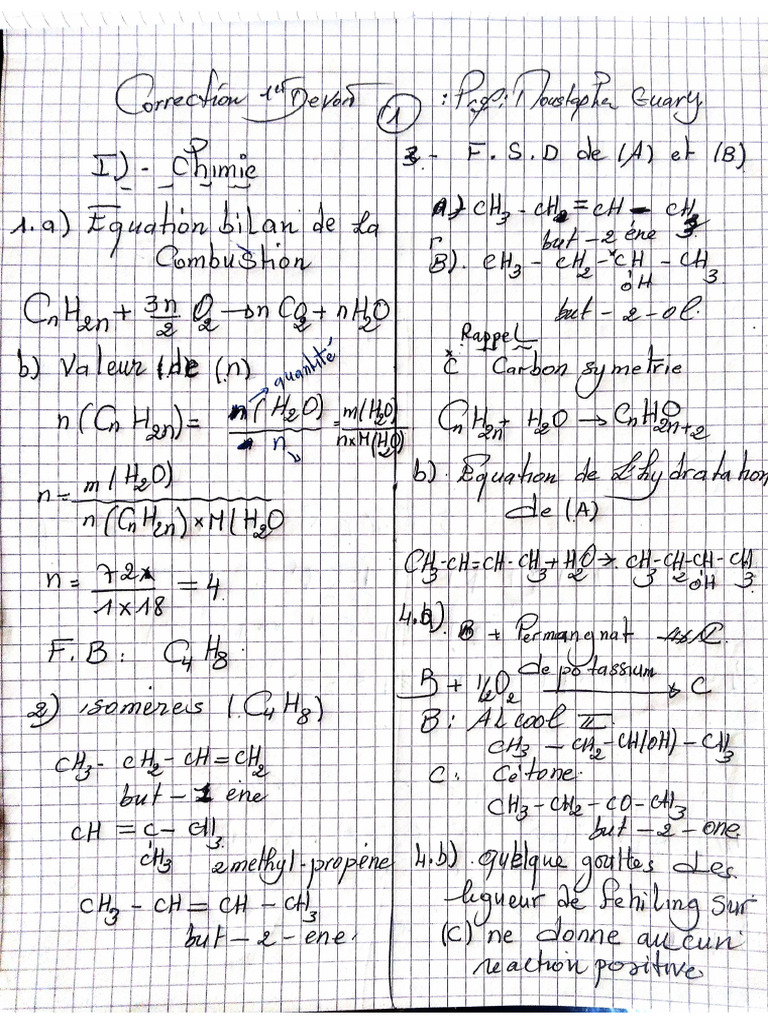 Correction 1er Devoir
1
: Prof: Moustapha Guary
I) - Chimie
1.a) Equation bilan de la
Combustion
CnH2n + 3n/2 O2 → n CO2 + n H2O
b) Valeur de (n)
quantité
n(CnH2n) = n(H2O)/n = m(H2O)/n×M(H2O)
n = m(H2O)/n(CnH2n)×M(H2O
n = 72/1×18 = 4
F.B : C4H8
2) isomères (C4H8)
CH3 - CH2 - CH = CH2
but - 1 ène
CH = C - CH3
CH3
2methyl-propène
CH3 - CH = CH - CH3
but - 2 - ène
3 - F.S.D de (A) et (B)
A) CH3 - CH2 = CH - CH3
but - 2 ène
B). CH3 - CH2 - *CH - CH3
OH
but - 2 - ol.
Rappel
*C Carbon symetrie
CnH2n + H2O → CnH2n+2O
b). Equation de L'hydratation
de (A)
CH3-CH=CH-CH3 + H2O → CH3-CH2-CH-CH3
OH
4.a)
B + Permangnat → C.
de potassium
B + 1/2 O2 → C
B : ALcool II
CH3 - CH2 - CH(OH) - CH3
C : Cétone.
CH3 - CH2 - CO - CH3
but - 2 - one.
4.b). quelque gouttes des
liqueur de Fehiling sur
(C) ne donne aucun
reaction positive